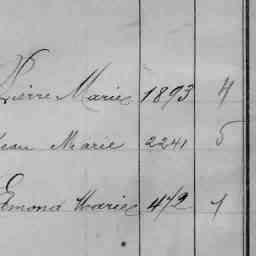 Pierre Marie 1893 4
Jean Marie 2241 5
Edmond Marie 472 1